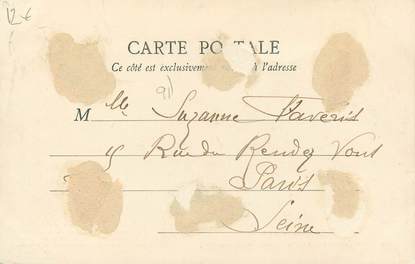 12 €
CARTE POSTALE
Ce côté est exclusivement à l'adresse
91
M lle Suzanne
Rue du Rendez Vous
Paris
Seine